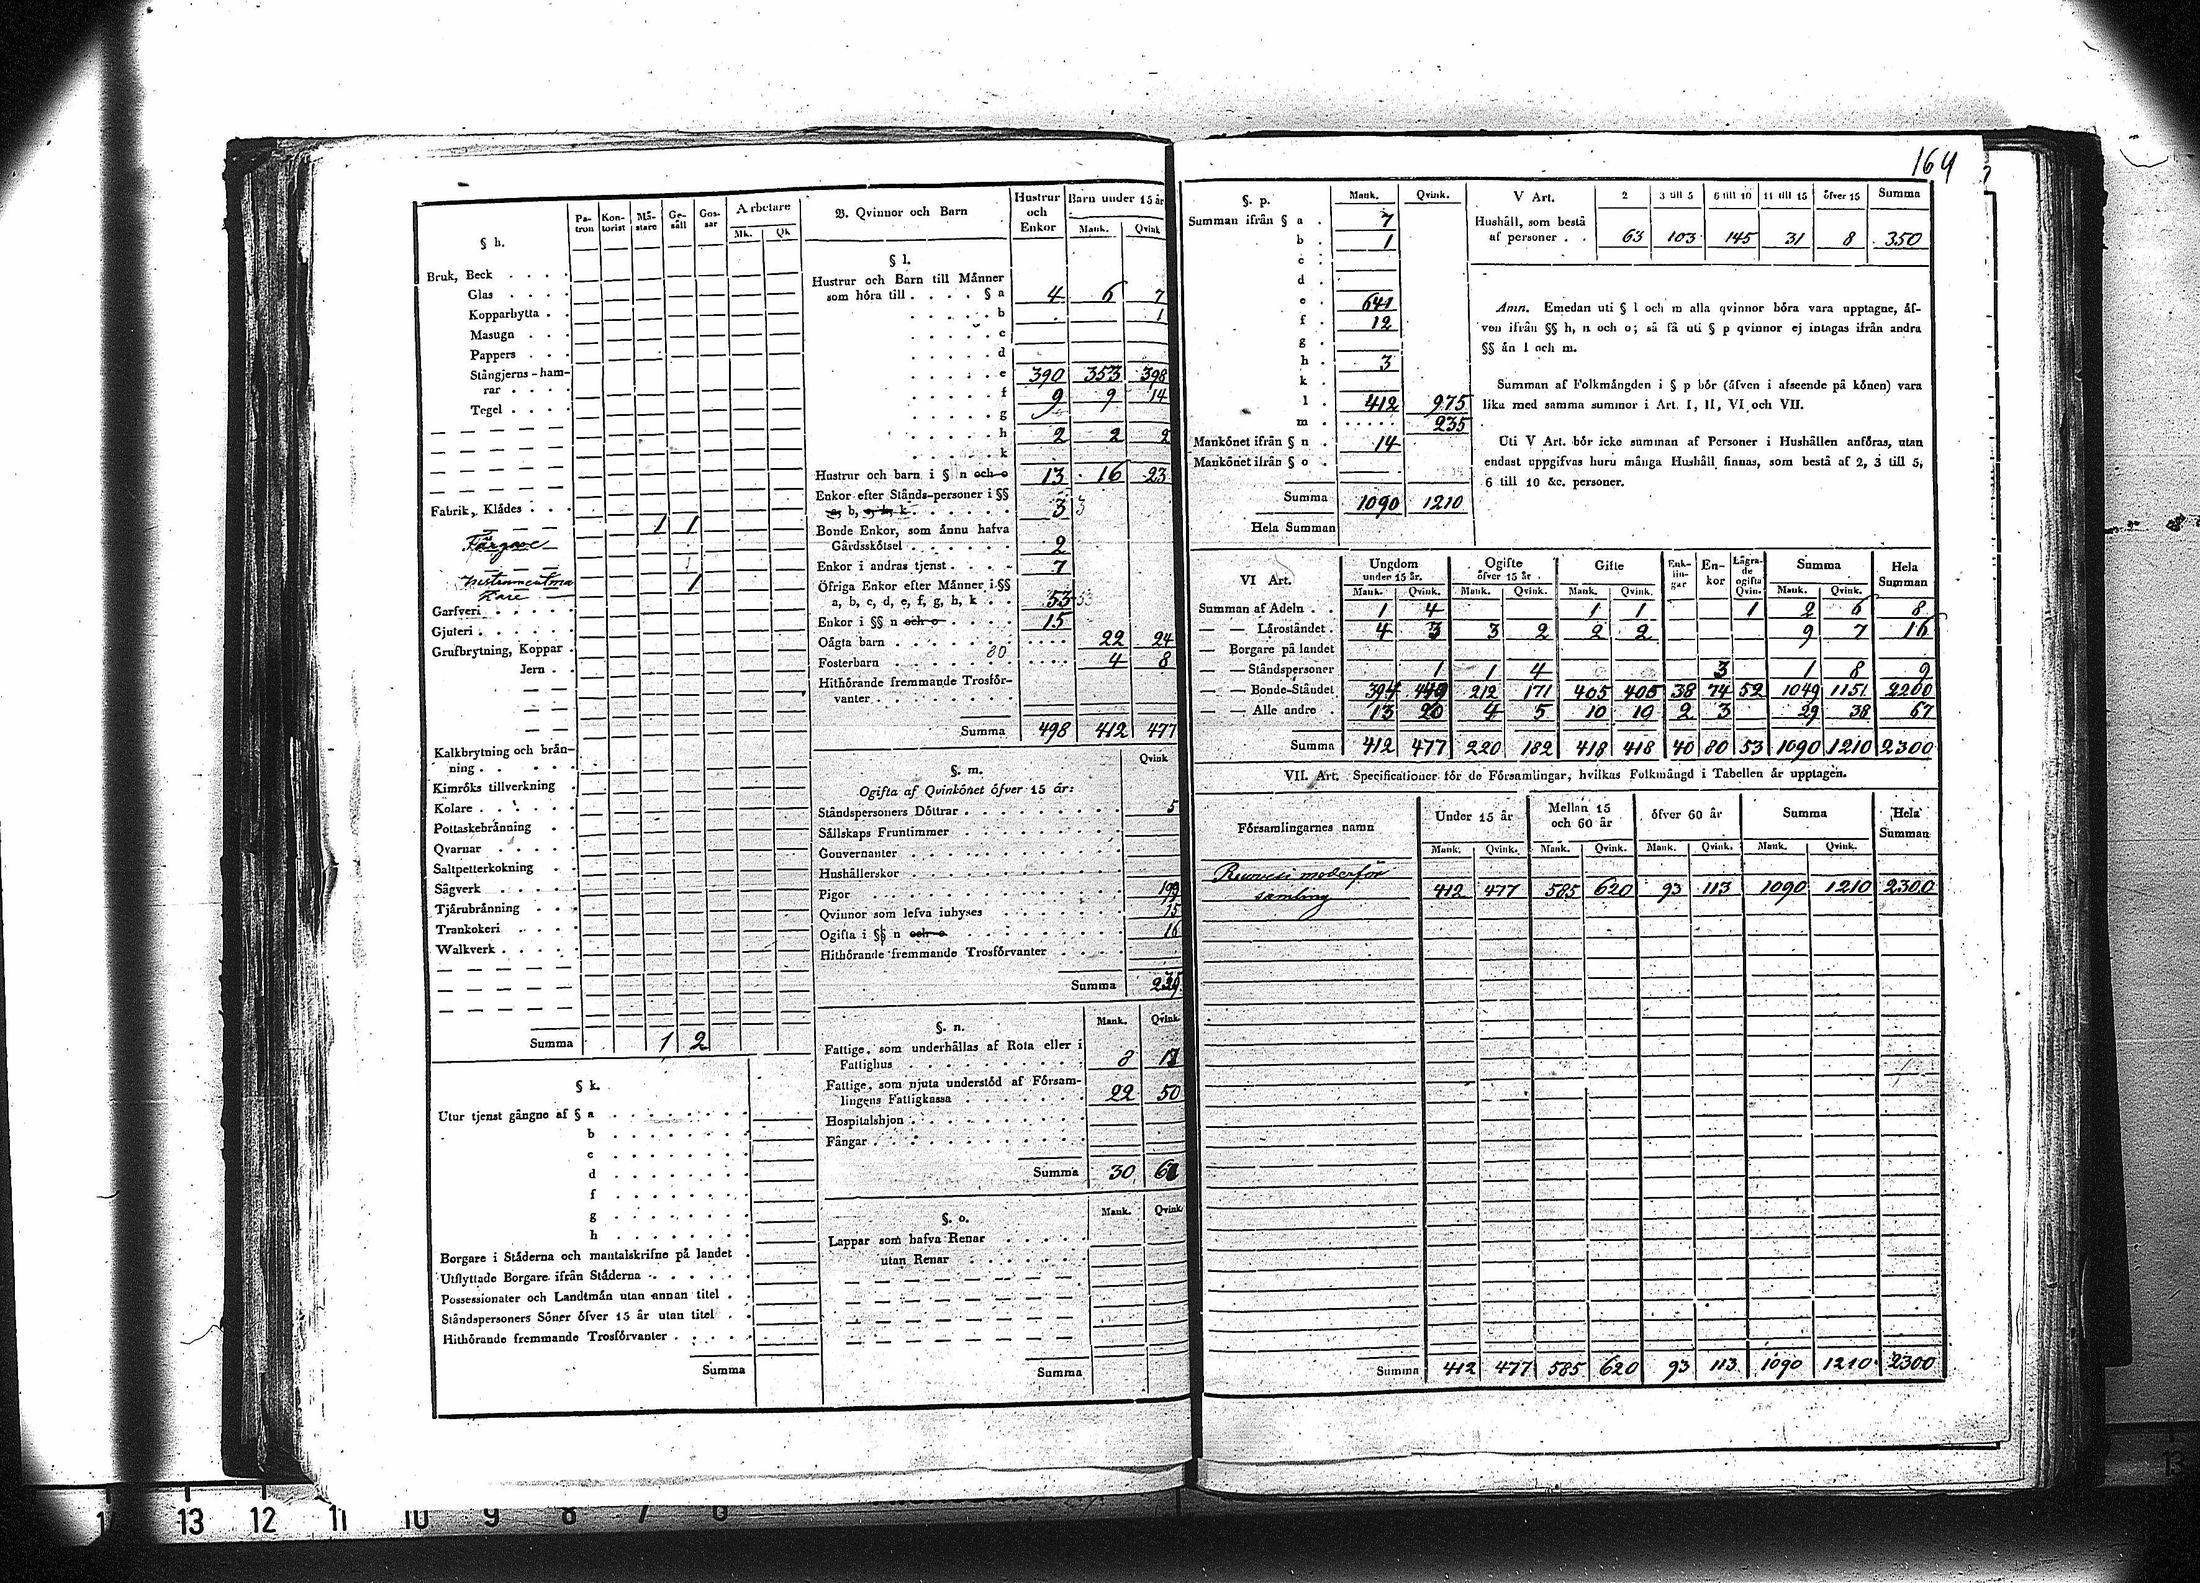 164
§ h.
Pa-tron Kon-torist Må-stare Ge-säll Gos-sar Arbetare
Mk. Qk
Bruk, Beck . . . .
Glas . . . .
Kopparhytta . .
Masugn . . .
Pappers . . .
Stångjerns-ham-
rar . . . .
Tegel . . . .
Fabrik, Klådes . . .
Färgare 1 1
Instrumentma
kare 1
Garfveri . . . . .
Gjuteri . . . . . .
Grufbrytning, Koppar .
Jern . .
Kalkbrytning och brån-
ning . . . . . .
Kimróks tillverkning .
Kolare . . . . . .
Pottaskebränning . .
Qvarnar . . . .
Saltpetterkokning .
Sågverk . . . . .
Tjårubrånning . . .
Trankokeri . . . .
Walkverk . . . . .
Summa 1 2
§ k.
Utur tjenst gångne af § a . . . . . . . .
b . . . . . . . .
c . . . . . . . .
d . . . . . . . .
f . . . . . . . .
g . . . . . . . .
h . . . . . . . .
Borgare i Ståderna och mantalskrifne på landet .
Utflyttade Borgare ifrån Ståderna . . . . . .
Possessionater och Landtmån utan annan titel . .
Ståndspersoners Sóner ófver 15 år utan titel . .
Hithórande fremmande Trosfórvanter . . . . .
Summa
B. Qvinnor och Barn
Hustrur och Enkor Barn under 15 år
Mank. Qvink
§ l.
Hustrur och Barn till Månner
som hóra till . . . . § a 4 6 7
b 1
c
d
e 390 353 398
f 9 9 14
g
h 2 2 2
k
Hustrur och barn i § n och o 13 16 23
Enkor efter Stånds-personer i §§
a, b, c, h, k . . . . . . 3 3
Bonde Enkor, som ånnu hafva
Gårdsskótsel . . . . . . 2
Enkor i andras tjenst . . . . 7
Öfriga Enkor efter Månner i §§
a, b, c, d, e, f, g, h, k . . 53 53
Enkor i §§ n och o . . . . . 15
Oågta barn . . . . . . . . 22 24
80
Fosterbarn . . . . . . . . 4 8
Hithórande fremmande Trosfór-
vanter . . . . . . . .
Summa 498 412 477
§. m.
Qvink
Ogifta af Qvinkónet ófver 15 år:
Ståndspersoners Dóttrar . . . . . . . . . 5
Sållskaps Fruntimmer . . . . . . . . .
Gouvernanter . . . . . . . . . . .
Hushållerskor . . . . . . . . . . .
Pigor . . . . . . . . . . . . 199
Qvinnor som lefva inhyses . . . . . . . 15
Ogifta i §§ n och o . . . . . . . . . 16
Hithórande fremmande Trosfórvanter . . . .
Summa 235
§. n.
Mank. Qvink.
Fattige, som underhållas af Rota eller i
Fattighus . . . . . . . . . . 8
Fattige, som njuta understód af Fórsam-
lingens Fattigkassa . . . . . . . 22 50
Hospitalshjon . . . . . . . . . .
Fångar . . . . . . . . . . . .
Summa 30
§. o.
Mank. Qvink.
Lappar som hafva Renar . . . .
utan Renar . . . . . .
Summa
§. p.
Mank. Qvink.
Summan ifrån § a . 7
b . 1
c .
d .
e . 641
f . 12
g .
h . 3
k .
l . 412 975
m . . . . . . 235
Mankónet ifrån § n . 14
Mankónet ifrån § o .
Summa 1090 1210
Hela Summan
V Art. 2 3 till 5 6 till 10 11 till 15 ófver 15 Summa
Hushåll, som bestå
af personer . . 63 103 145 31 8 350
Anm. Emedan uti § l och m alla qvinnor bóra vara upptagne, åf-
ven ifrån §§ h, n och o; så få uti § p qvinnor ej intagas ifrån andra
§§ ån l och m.
Summan af Folkmångden i § p bór (åfven i afseende på kónen) vara
lika med samma summor i Art. I, II, VI och VII.
Uti V Art. bór icke summan af Personer i Hushållen anfóras, utan
endast uppgifvas huru många Hushåll finnas, som bestå af 2, 3 till 5,
6 till 10 &c. personer.
VI Art.
Ungdom under 15 år. Ogifte ófver 15 år. Gifte Enk-lin-gar En-kor Lågra-de ogifta Qvin. Summa Hela Summan
Mank. Qvink. Mank. Qvink. Mank. Qvink. Mank. Qvink.
Summan af Adeln . . 1 4 1 1 1 2 6 8
— — Låroståndet . 4 3 3 2 2 2 9 7 16
— Borgare på landet
— — Ståndspersoner 1 1 4 3 1 8 9
— — Bonde-Ståndet 394 449 212 171 405 405 38 74 52 1049 1151 2200
— — Alle andre . 13 20 4 5 10 10 2 3 29 38 67
Summa 412 477 220 182 418 418 40 80 53 1090 1210 2300
VII. Art. Specificationer fór de Fórsamlingar, hvilkas Folkmångd i Tabellen år upptagen.
Fórsamlingarnes namn Under 15 år Mellan 15 och 60 år ófver 60 år Summa Hela Summan
Mank. Qvink. Mank. Qvink. Mank. Qvink. Mank. Qvink.
Ruovesi moderför
samling 412 477 585 620 93 113 1090 1210 2300
Summa 412 477 585 620 93 113 1090 1210 2300
13 12 11 10 9 8 7 6
13